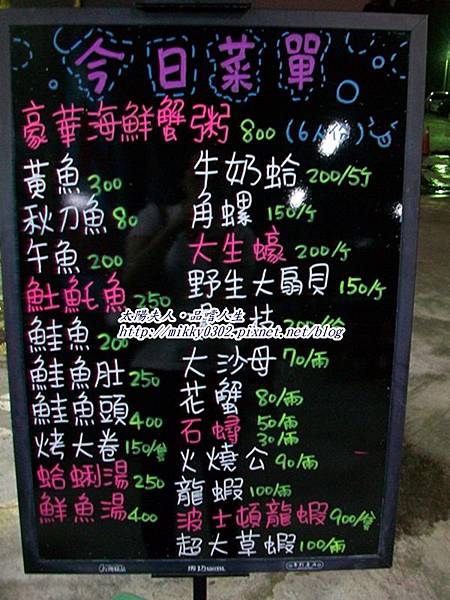 今日菜單
豪華海鮮蟹粥 800 (6人份)
黃魚 300
秋刀魚 80
午魚 200
魟魠魚 250
鮭魚 200
鮭魚肚 250
鮭魚頭 400
烤大卷 150/隻
蛤蜊湯 250
鮮魚湯 400
牛奶蛤 200/5ケ
角螺 150/ケ
大生蠔 200/ケ
野生大扇貝 150/ケ
大沙母 70/兩
花蟹 80/兩
石蟳 50/兩
30/兩
火燒公 90/兩
龍蝦 100/兩
波士頓龍蝦 900/隻
超大草蝦 100/兩
太陽夫人・品嚐人生
http://mikky0302.pixnet.net/blog